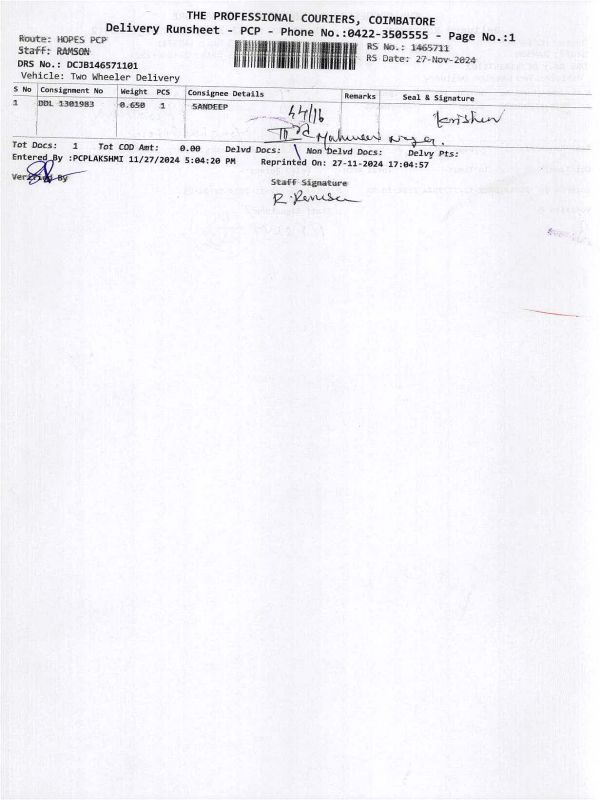 THE PROFESSIONAL COURIERS, COIMBATORE
Delivery Runsheet - PCP - Phone No.:0422-3505555 - Page No.:1
Route: HOPES PCP
Staff: RAMSON
RS No.: 1465711
RS Date: 27-Nov-2024
DRS No.: DCJB146571101
Vehicle: Two Wheeler Delivery
S No Consignment No Weight PCS Consignee Details Remarks Seal & Signature
1 DDL 1301983 0.650 1 SANDEEP
44/16
Tot Docs: 1 Tot COD Amt: 0.00 Delvd Docs: Non Delvd Docs: Delvy Pts:
Entered By :PCPLAKSHMI 11/27/2024 5:04:20 PM Reprinted On: 27-11-2024 17:04:57
Verified By
Staff Signature